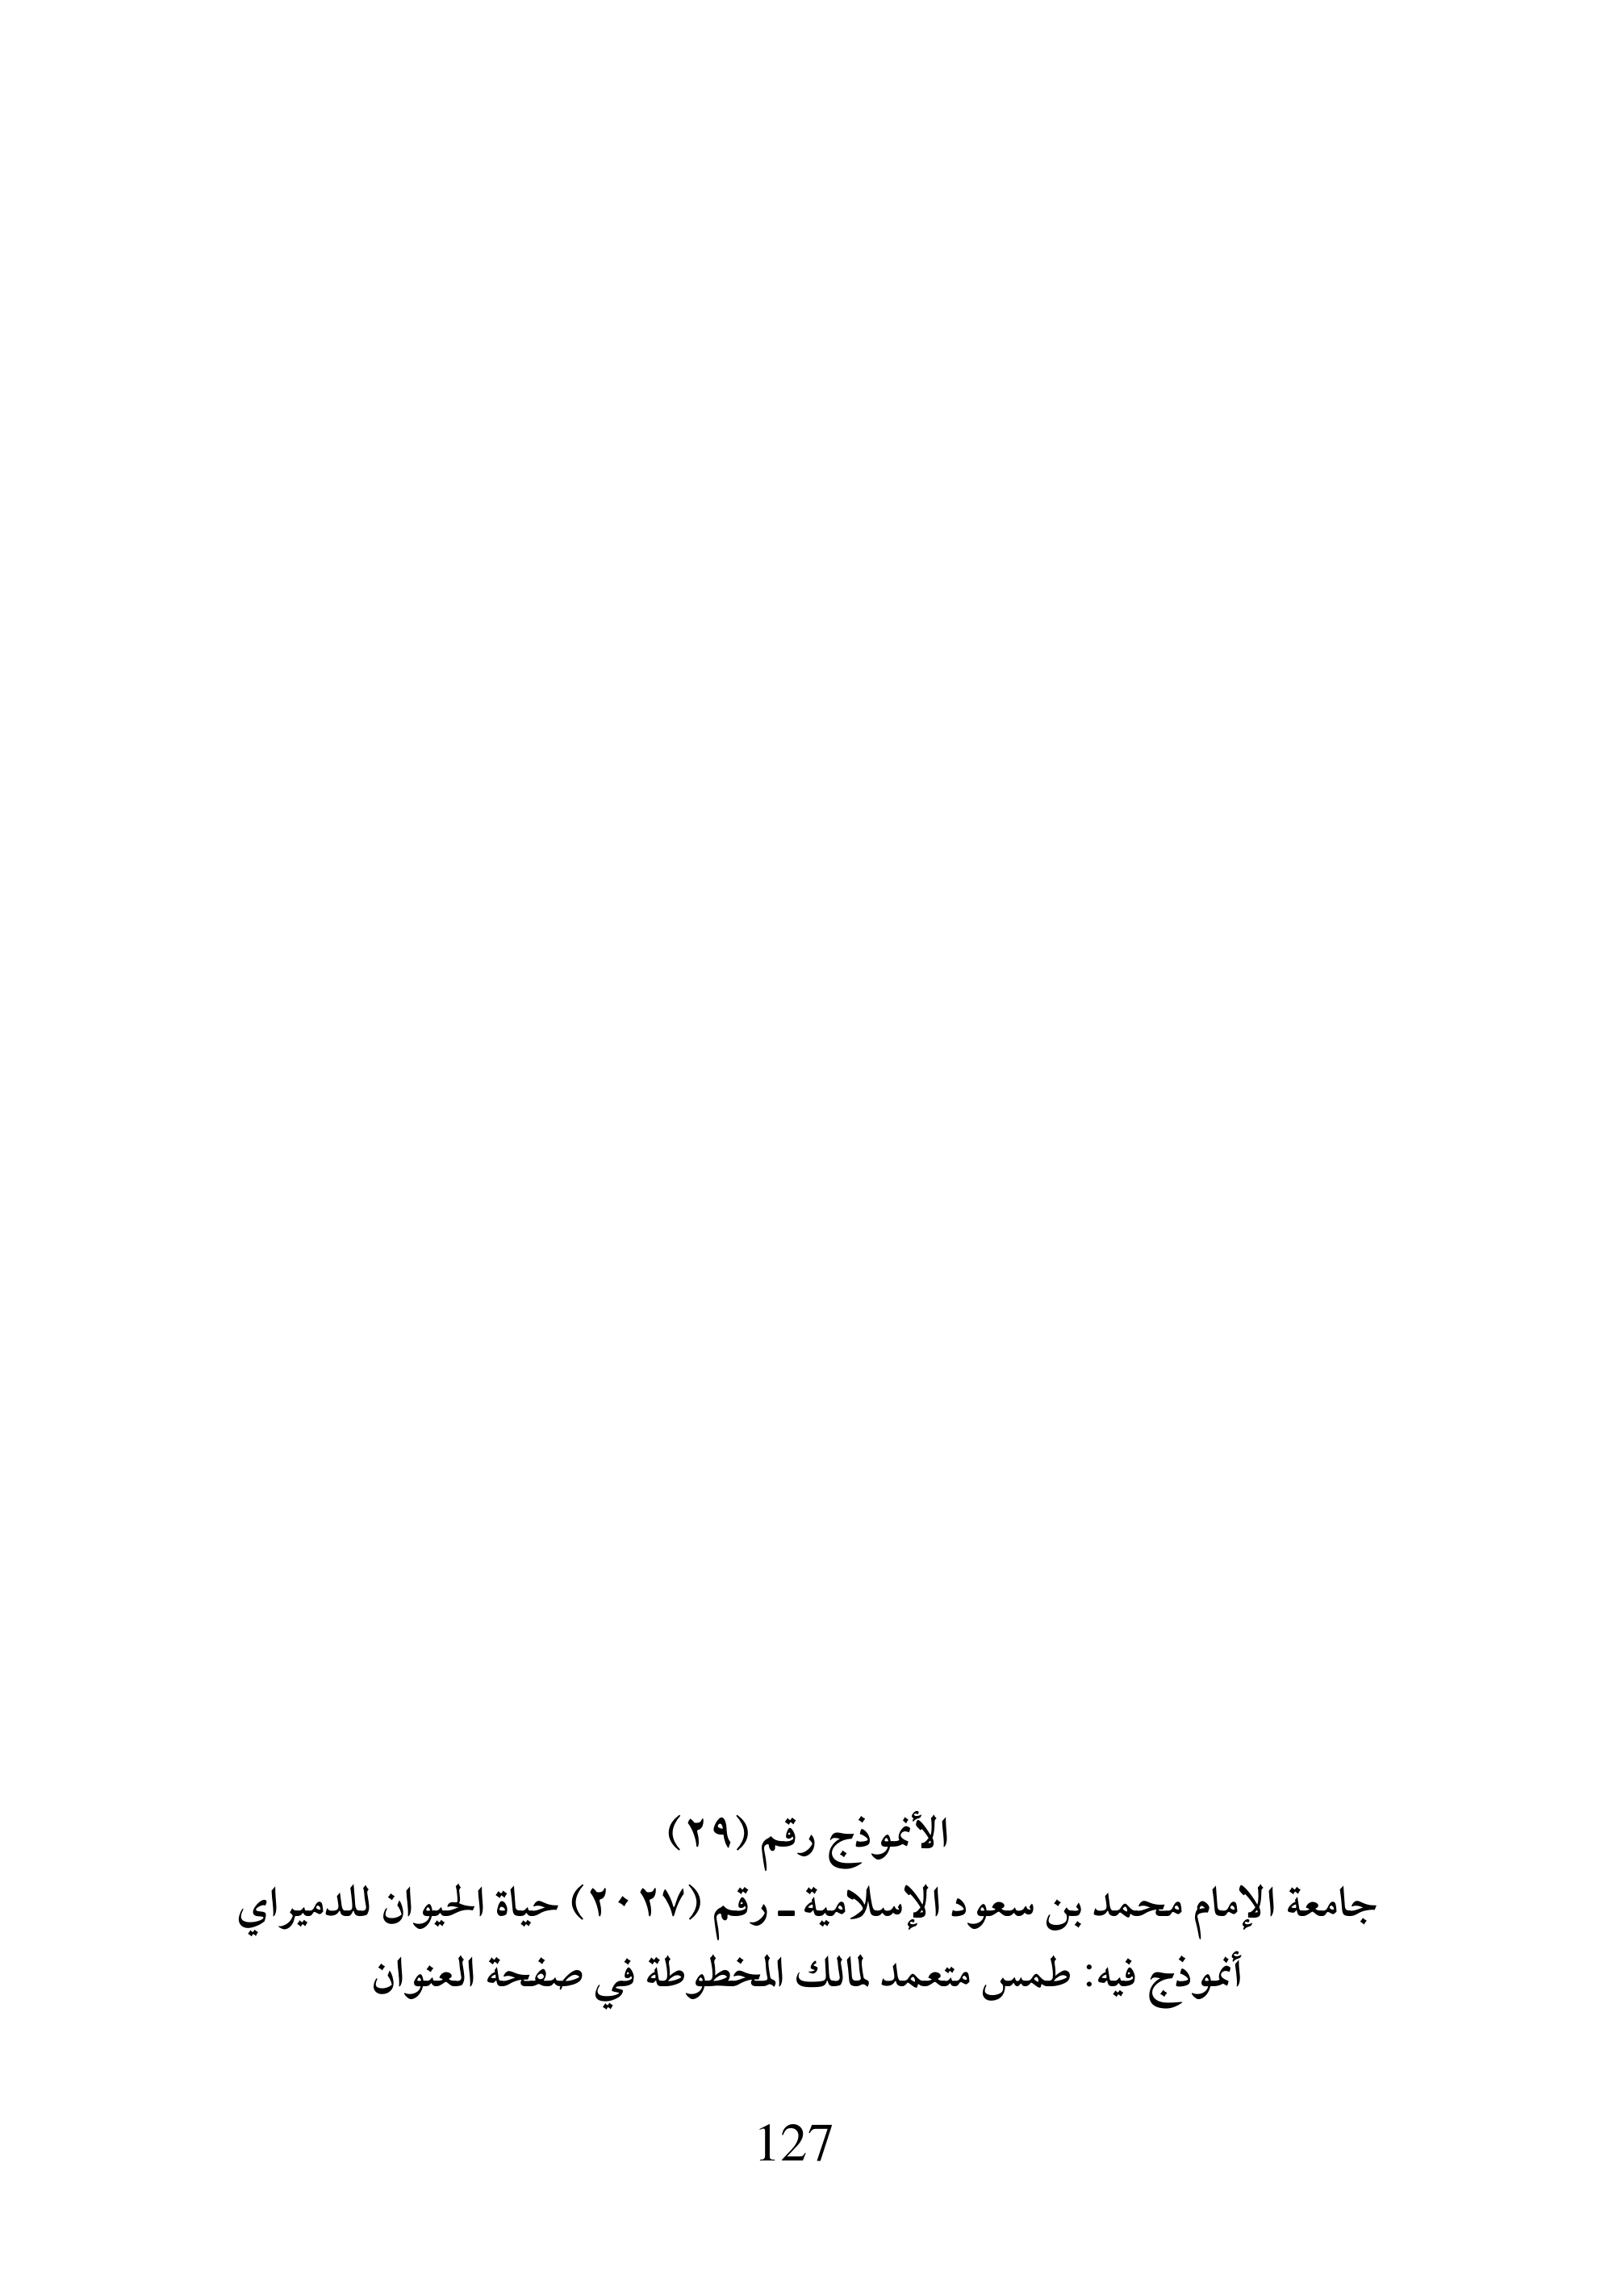 الأنموذج رقم (٢٩)
جامعة الإمام محمد بن سعود الإسلامية ـ رقم (٢٠٢٧) حياة الحيوان للدميراي
أنموذج فيه: طمس متعمد لمالك المخطوطة في صفحة العنوان
127